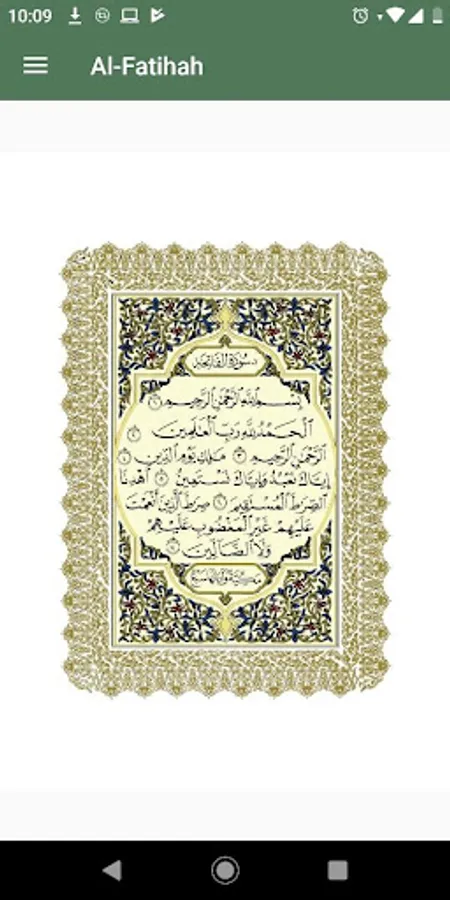 10:09
Al-Fatihah
سورة الفاتحة
بسم الله الرحمن الرحيم ١
الحمد لله رب العلمين ٢
الرحمن الرحيم ٣ ملك يوم الدين ٤
إياك نعبد وإياك نستعين ٥ اهدنا
الصرط المستقيم ٦ صرط الذين أنعمت
عليهم غير المغضوب عليهم
ولا الضالين ٧